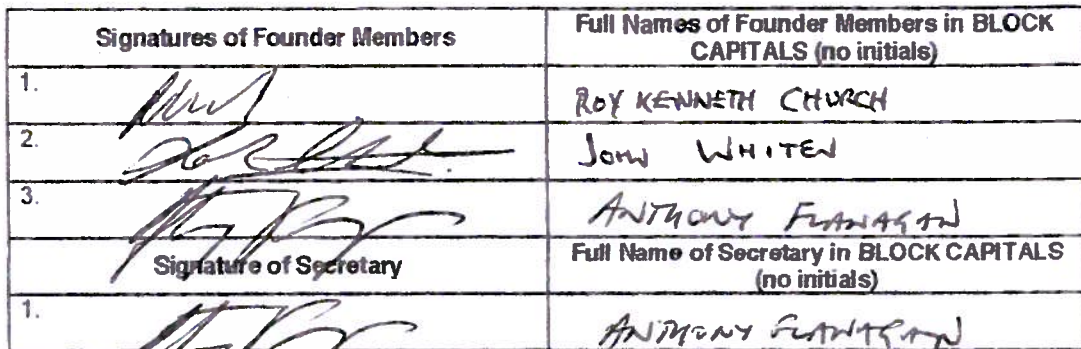 Signatures of Founder Members
Full Names of Founder Members in BLOCK
CAPITALS (no initials)
1.
ROY KENNETH CHURCH
2.
JOHN WHITEN
3.
ANTHONY FLANAGAN
Signature of Secretary
Full Name of Secretary in BLOCK CAPITALS
(no initials)
1.
ANTHONY FLANAGAN